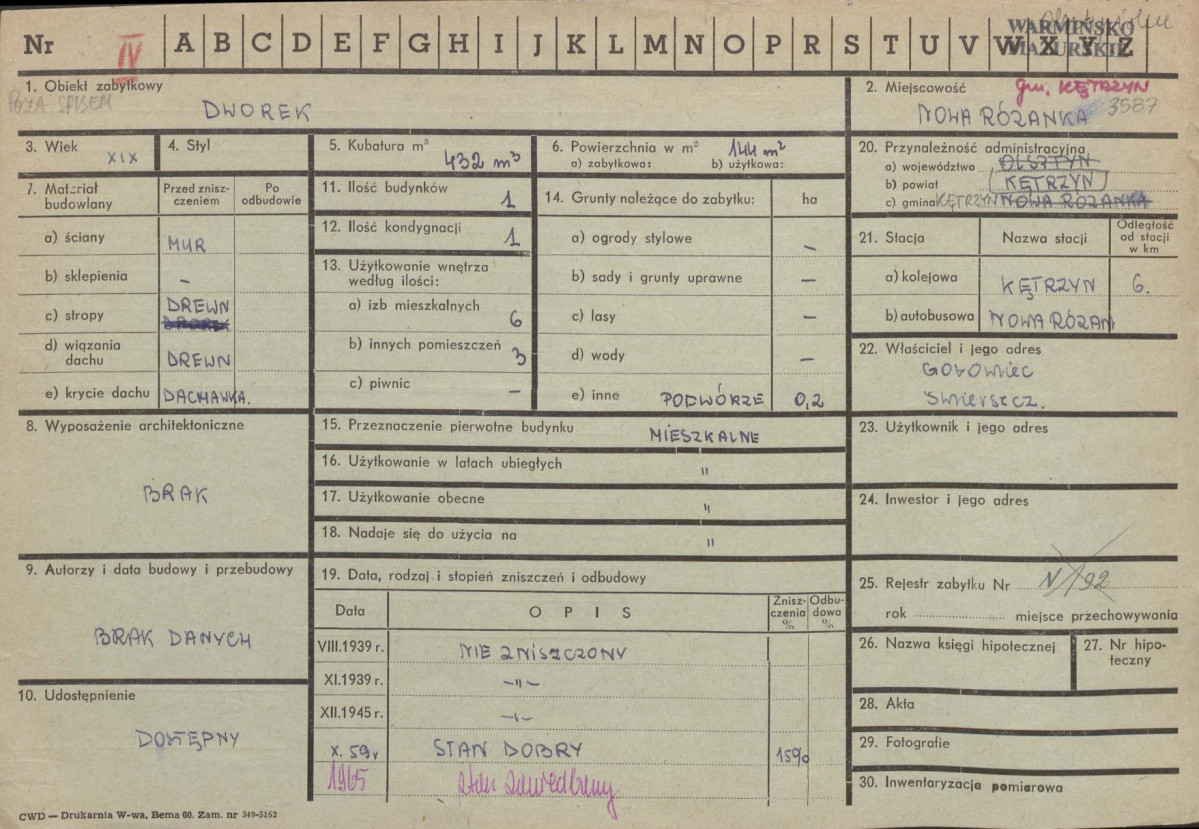 Nr IV A B C D E F G H I J K L M N O P R S T U V W X Y Z
WARMIŃSKO
MAZURSKIE
1. Obiekt zabytkowy
POZA SPISEM
DWOREK
2. Miejscowość gm. KĘTRZYN
NOWA RÓŻANKA 3587
3. Wiek XIX
4. Styl
5. Kubatura m³ 432 m³
6. Powierzchnia w m² 144 m²
a) zabytkowa: b) użytkowa:
20. Przynależność administracyjna
a) województwo OLSZTYN
b) powiat KĘTRZYN
c) gmina KĘTRZYN NOWA RÓŻANKA
7. Materiał budowlany
Przed zniszczeniem
Po odbudowie
a) ściany MUR
b) sklepienia –
c) stropy DREWN
d) wiązania dachu DREWN
e) krycie dachu DACHÓWKA.
11. Ilość budynków 1
12. Ilość kondygnacji 1
13. Użytkowanie wnętrza według ilości:
a) izb mieszkalnych 6
b) innych pomieszczeń 3
c) piwnic –
14. Grunty należące do zabytku: ha
a) ogrody stylowe –
b) sady i grunty uprawne –
c) lasy –
d) wody –
e) inne PODWÓRZE 0,2
21. Stacja
Nazwa stacji
Odległość od stacji w km
a) kolejowa KĘTRZYN 6.
b) autobusowa NOWA RÓŻAN
22. Właściciel i jego adres
8. Wyposażenie architektoniczne
BRAK
15. Przeznaczenie pierwotne budynku MIESZKALNE
16. Użytkowanie w latach ubiegłych "
17. Użytkowanie obecne "
18. Nadaje się do użycia na "
23. Użytkownik i jego adres
24. Inwestor i jego adres
9. Autorzy i data budowy i przebudowy
BRAK DANYCH
10. Udostępnienie
DOSTĘPNY
19. Data, rodzaj i stopień zniszczeń i odbudowy
Data
OPIS
Zniszczenia %
Odbudowa %
VIII.1939 r. NIE ZNISZCZONY
XI.1939 r. –"–
XII.1945 r. –"–
X. 59 r STAN DOBRY 15%
1965
25. Rejestr zabytku Nr N/192
rok miejsce przechowywania
26. Nazwa księgi hipotecznej
27. Nr hipoteczny
28. Akta
29. Fotografie
30. Inwentaryzacja pomiarowa
CWD — Drukarnia W-wa, Bema 60. Zam. nr 349-5162